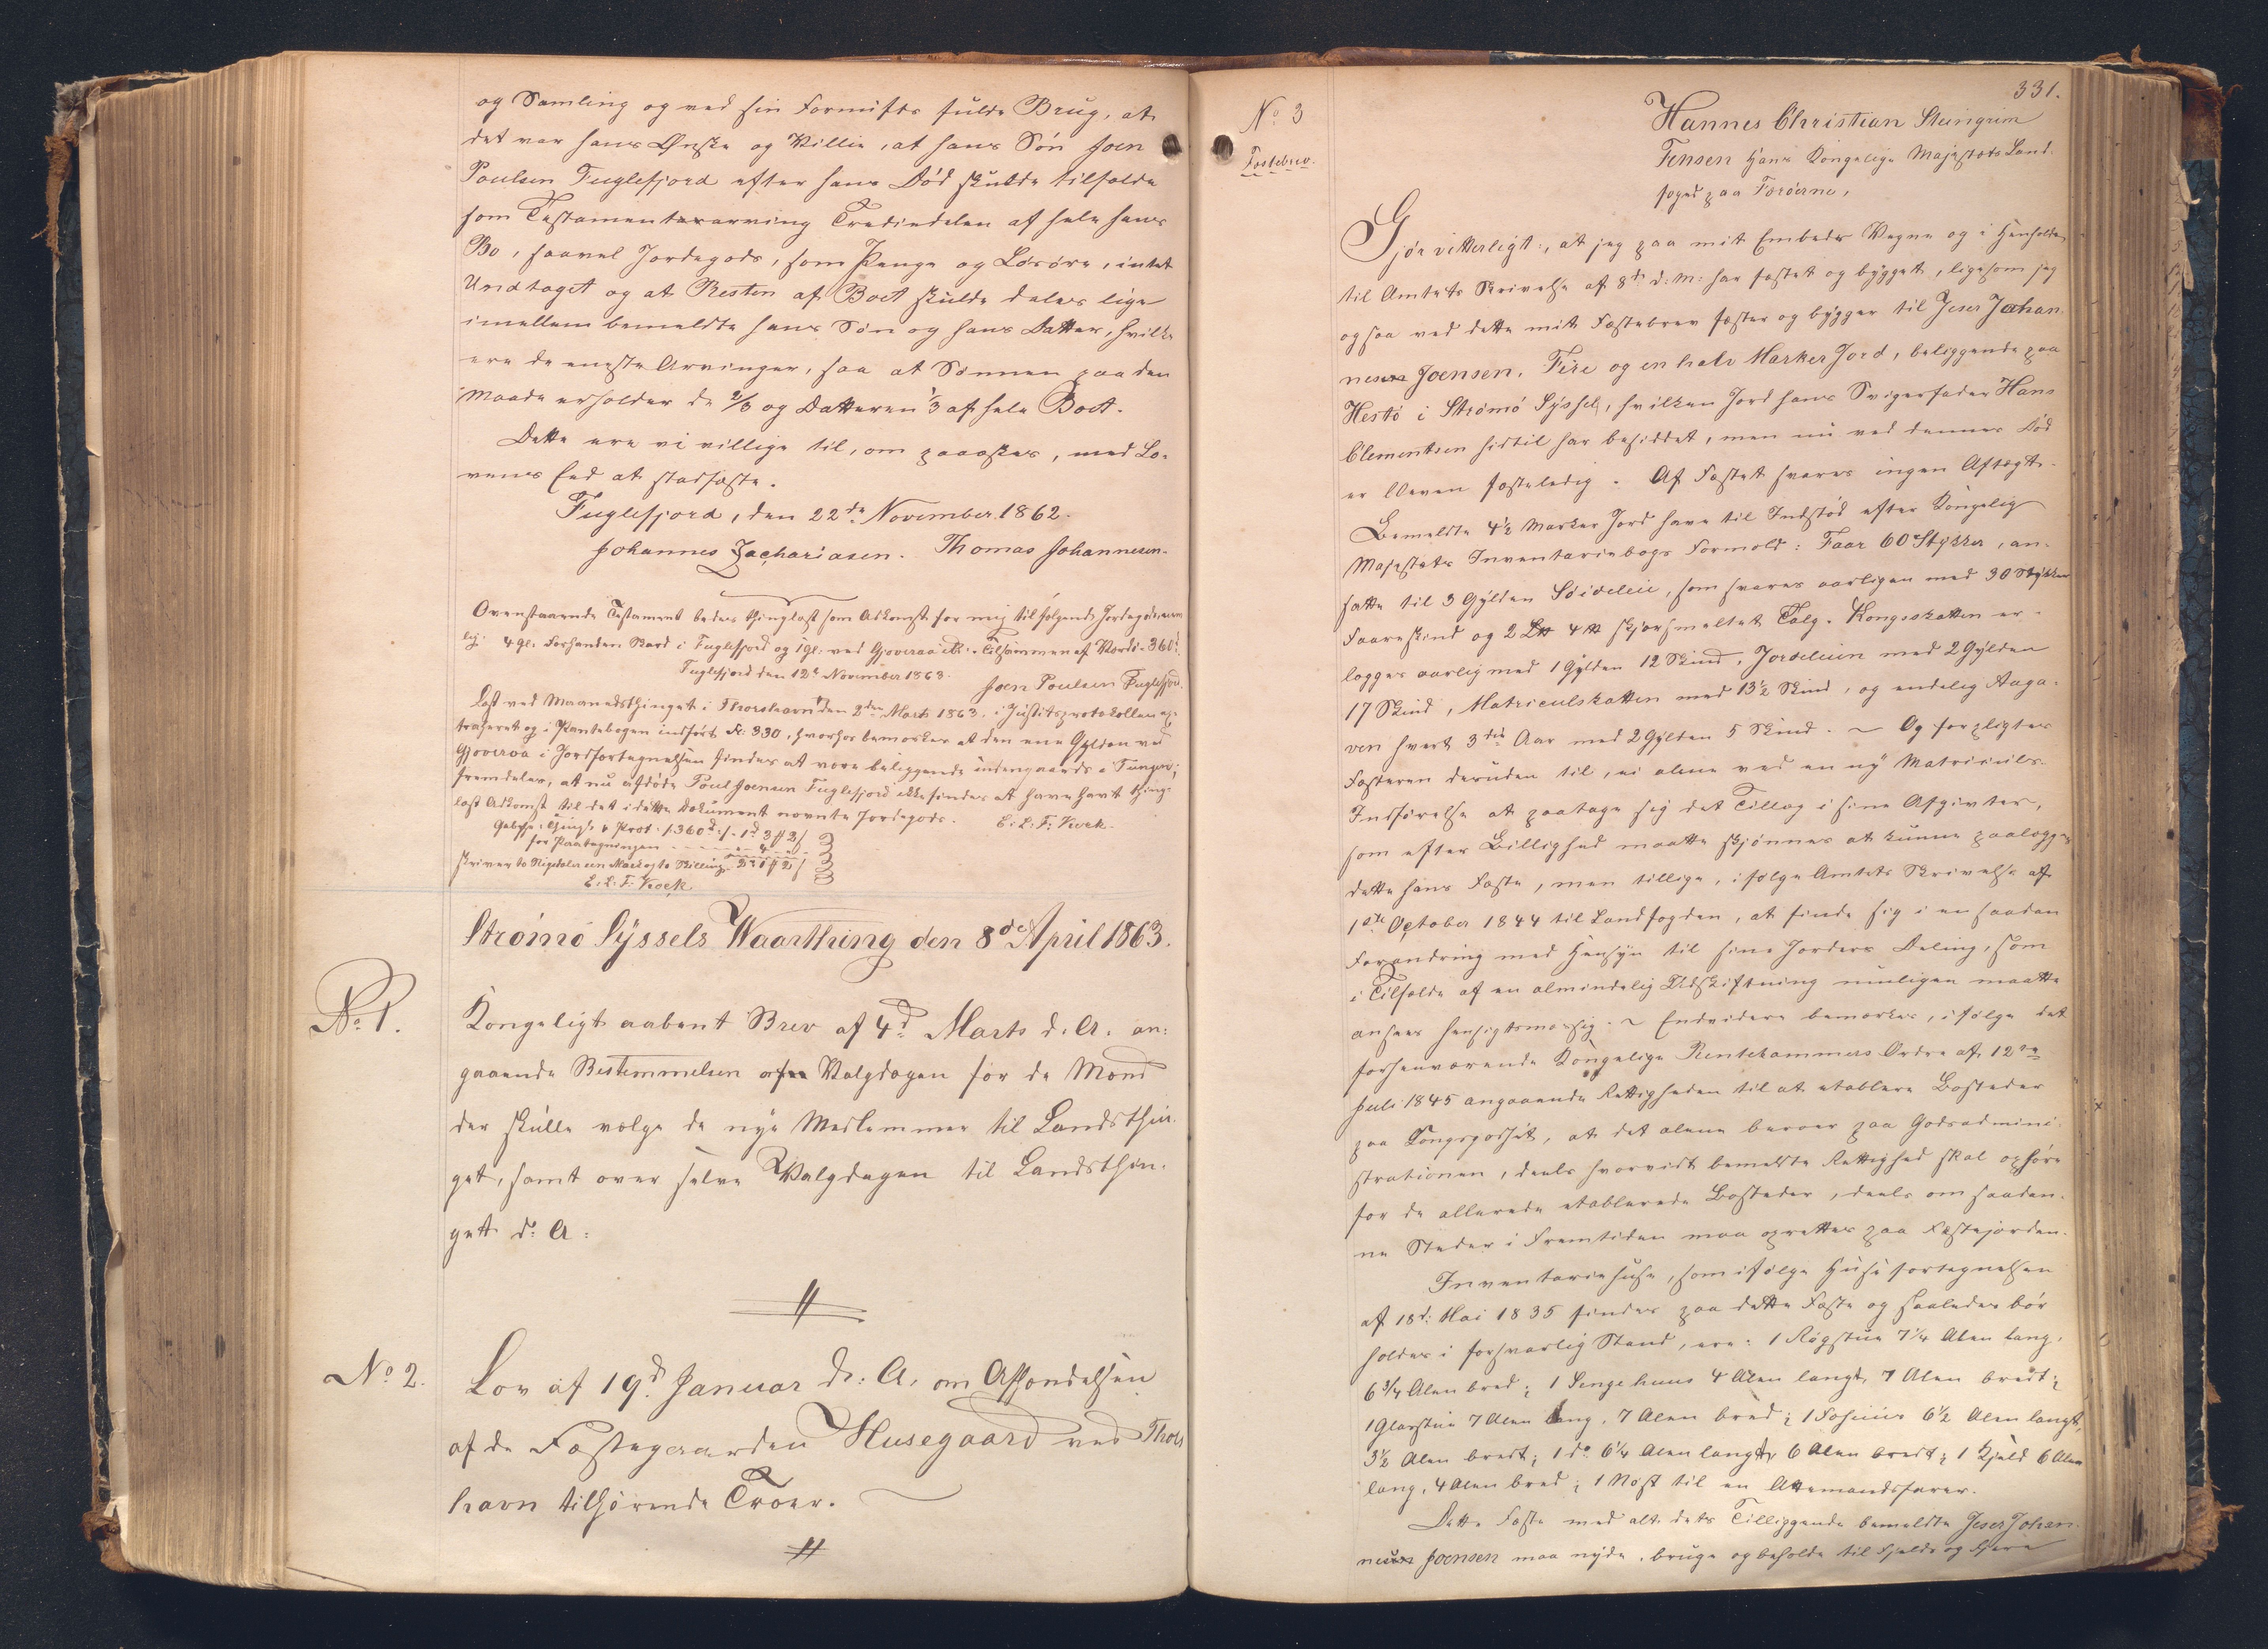 og Samling og ved sin Fornufts fulde Brug, at
det var hans Ønske og Villie, at hans Søn Joen
Poulsen Fuglefjord efter hans Død skulde tilfalde
som Testamentsarving Trediedelen af hele hans
Bo, saavel Jordegods, som Penge og Løsøre, intet
Undtaget og at Resten af Boet skulde deles lige
imellem bemeldte hans Søn og hans Datter, hvilke
ere de eneste Arvinger, saa at Sønnen paa den
Maade erholder de 2/3 og Datteren 1/3 af hele Boet.
Dette ere vi villige til, om paaæskes, med Lo-
vens Eed at stadfæste.
Fuglefjord, den 22de November 1862.
Johannes Zachariasen. Thomas Johannesen.
Ovenstaaende Testament bedes thinglæst som Adkomst for mig til følgende Jordegods, nem
lig: 4 Gl. Forhanden Skard i Fuglefjord og 1 Gl. ved Gjoveraa Tilsammen af Værdi 360
Fuglefjord den 12te November 1863.
Joen Poulsen Fuglefjord.
Læst ved Maanedsthinget i Thorshavn den 2den Marts 1863, i Justitsprotokollen ex-
traheret og i Pantebogen indført Fol: 330, hvorhos bemærkes at den ene Gylden ved
Gjoveraa i Jordfortegnelsen findes at være beliggende indengaards i
fremdeles, at nu afdøde Poul Joensen Fuglefjord ikke findes at have havt thing-
læst Adkomst til det i dette Dokument nævnte Jordegods. E: L: F: Krock
for Paategningen
skriver to Rigsdaler een Mark og to Skilling
E: L: F: Krock
Strømø Syssels Waarthing den 8de April 1863.
No 1.
Kongeligt aabent Brev af 4d Marts d. A. an-
gaaende Bestemmelsen Valgdagen for de Mænd
der skulle vælge de nye Medlemmer til Landsthin-
get, samt over selve Valgdagen til Landsthin-
gett d: A:
No 2.
Lov af 19d Januar d: A. om Afhændelsen
af de Fæstegaarden Husegaard ved Thors
havn tilhørende Trøer.
331.
No 3
Fæstebrev.
Hannes Christian Steingrim
Fensen Hans Kongelige Majestæts Land-
foged paa Færøerne,
Gjør vitterligt:, at jeg paa mit Embeds Vegne og i Henhold
til Amtets Skrivelse af 8d d: M: har fæstet og bygget, ligesom jeg
ogsaa ved dette mit Fæstebrev fæster og bygger til Jeser Johan-
nesen Joensen, Fire og en halv Marker Jord, beliggende paa
Hestø i Strømø Syssel, hvilken Jord hans Svigerfader Hans
Clementsen hidtil har besiddet, men nu ved dennes Død
er bleven fæsteledig. Af Fæstet svares ingen Aftægt.
Bemeldte 4½ Marker Jord have til Indstød efter Kongelig
Majestæts Inventariebogs Formeld: Faar 60 Stykker, an-
satte til 3 Gylden Søideleie, som svares aarligen med 30 Stykker
Faareskind og 2 L℔ 4 ℔ skjærsmeltet Talg. Kongsskatten er-
lægges aarlig med 1 Gylden 12 Skind, Jordeleien med 2 Gylden
17 Skind, Matriculskatten med 13½ Skind, og endelig Aaga-
ven hvert 3die Aar med 2 Gylden 5 Skind. ~ Og forpligtes
Fæsteren desuden til, ei alene ved en ny Matriculs-
Indførelse at paatage sig det Tillæg i sine Afgivter,
som efter Billighed maatte skjønnes at kunne paalægges
dette hans Fæste, men tillige, ifølge Amtets Skrivelse af
1ste October 1844 til Landfogden, at finde sig i en saadan
Forandring med Hensyn til sine Jorders Deling, som
i Tilfælde af en almindelig Udskiftning muligen maatte
ansees hensigtsmæssig. ~ Endvidere bemærkes, ifølge det
forhenværende Kongelige Rentekammers Ordre af 12te
Juli 1845 angaaende Rettigheden til at etablere Bosteder
paa Kongsgodset, at det alene beroer paa Godsadmini-
strationen, deels hvorvidt bemeldte Rettighed skal ophøre
for de allerede etablerede Bosteder, deels om saadan-
ne Steder i Fremtiden maa oprettes paa Fæstejorden.
Inventariehuse, som ifølge Huusfortegnelsen
af 18d: Mai 1835 findes paa dette Fæste og saaledes bør
holdes i forsvarlig Stand, ere: 1 Røgstue 7¼ Alen lang,
6¾ Alen bred; 1 Sengehuus 4 Alen langt, 7 Alen bredt;
1 Glarstue 7 Alen lang, 7 Alen bred; 1 Fæhuus 6½ Alen langt,
3½ Alen bredt; 1 do 6¼ Alen langt, 6 Alen bredt; 1 Hjald 6 Alen
lang, 4 Alen bred; 1 Nøst til en Attemandsfarer.
Dette Fæste med alt dets Tilliggende bemeldte Jeser Johan-
nesen Joensen maa nyde, bruge og beholde til Fjelds og Fjære